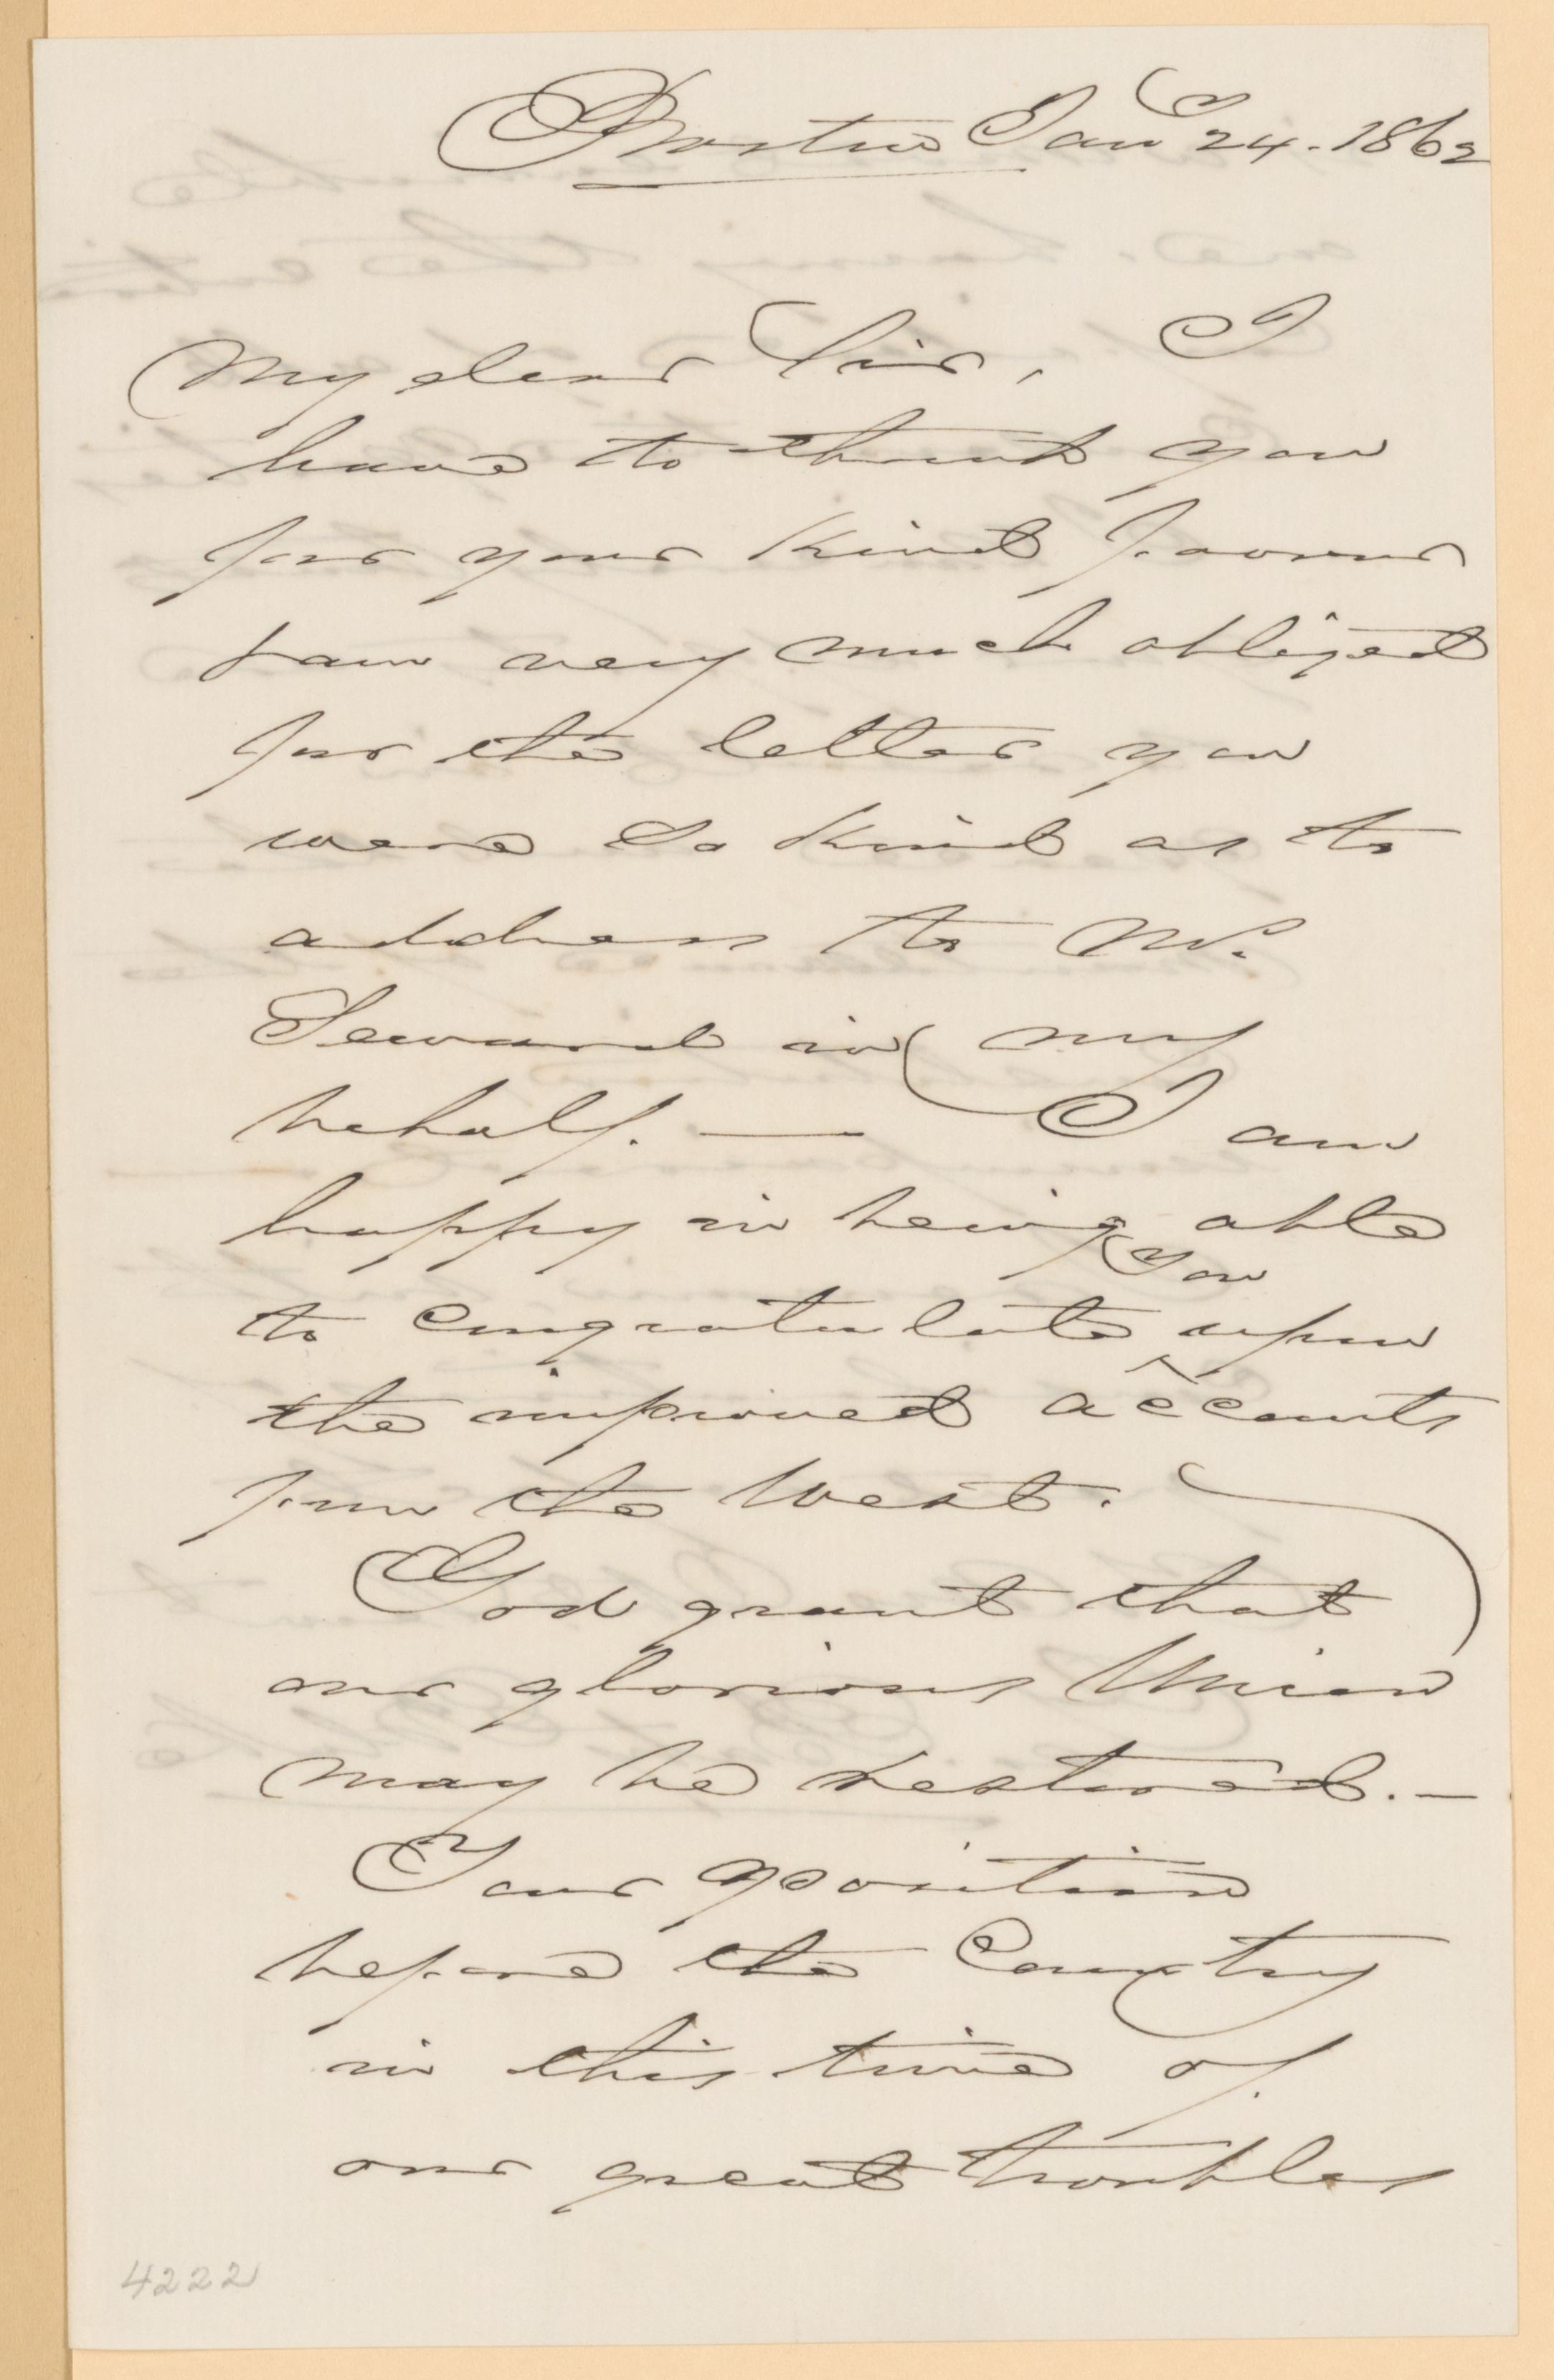 Boston Jany 24. 1862
My dear Sir, I
have to thank you
for your kind favour
& am very much obliged
for the letter you
were so kind as to
address to Mr.
Seward in my
behalf. — I am
happy in being able
to congratulate you upon
the improved accounts
from the West.
God grant that
our glorious Union
may be restored. —
Your position
before the Country
in this time of
our great troubles
4222